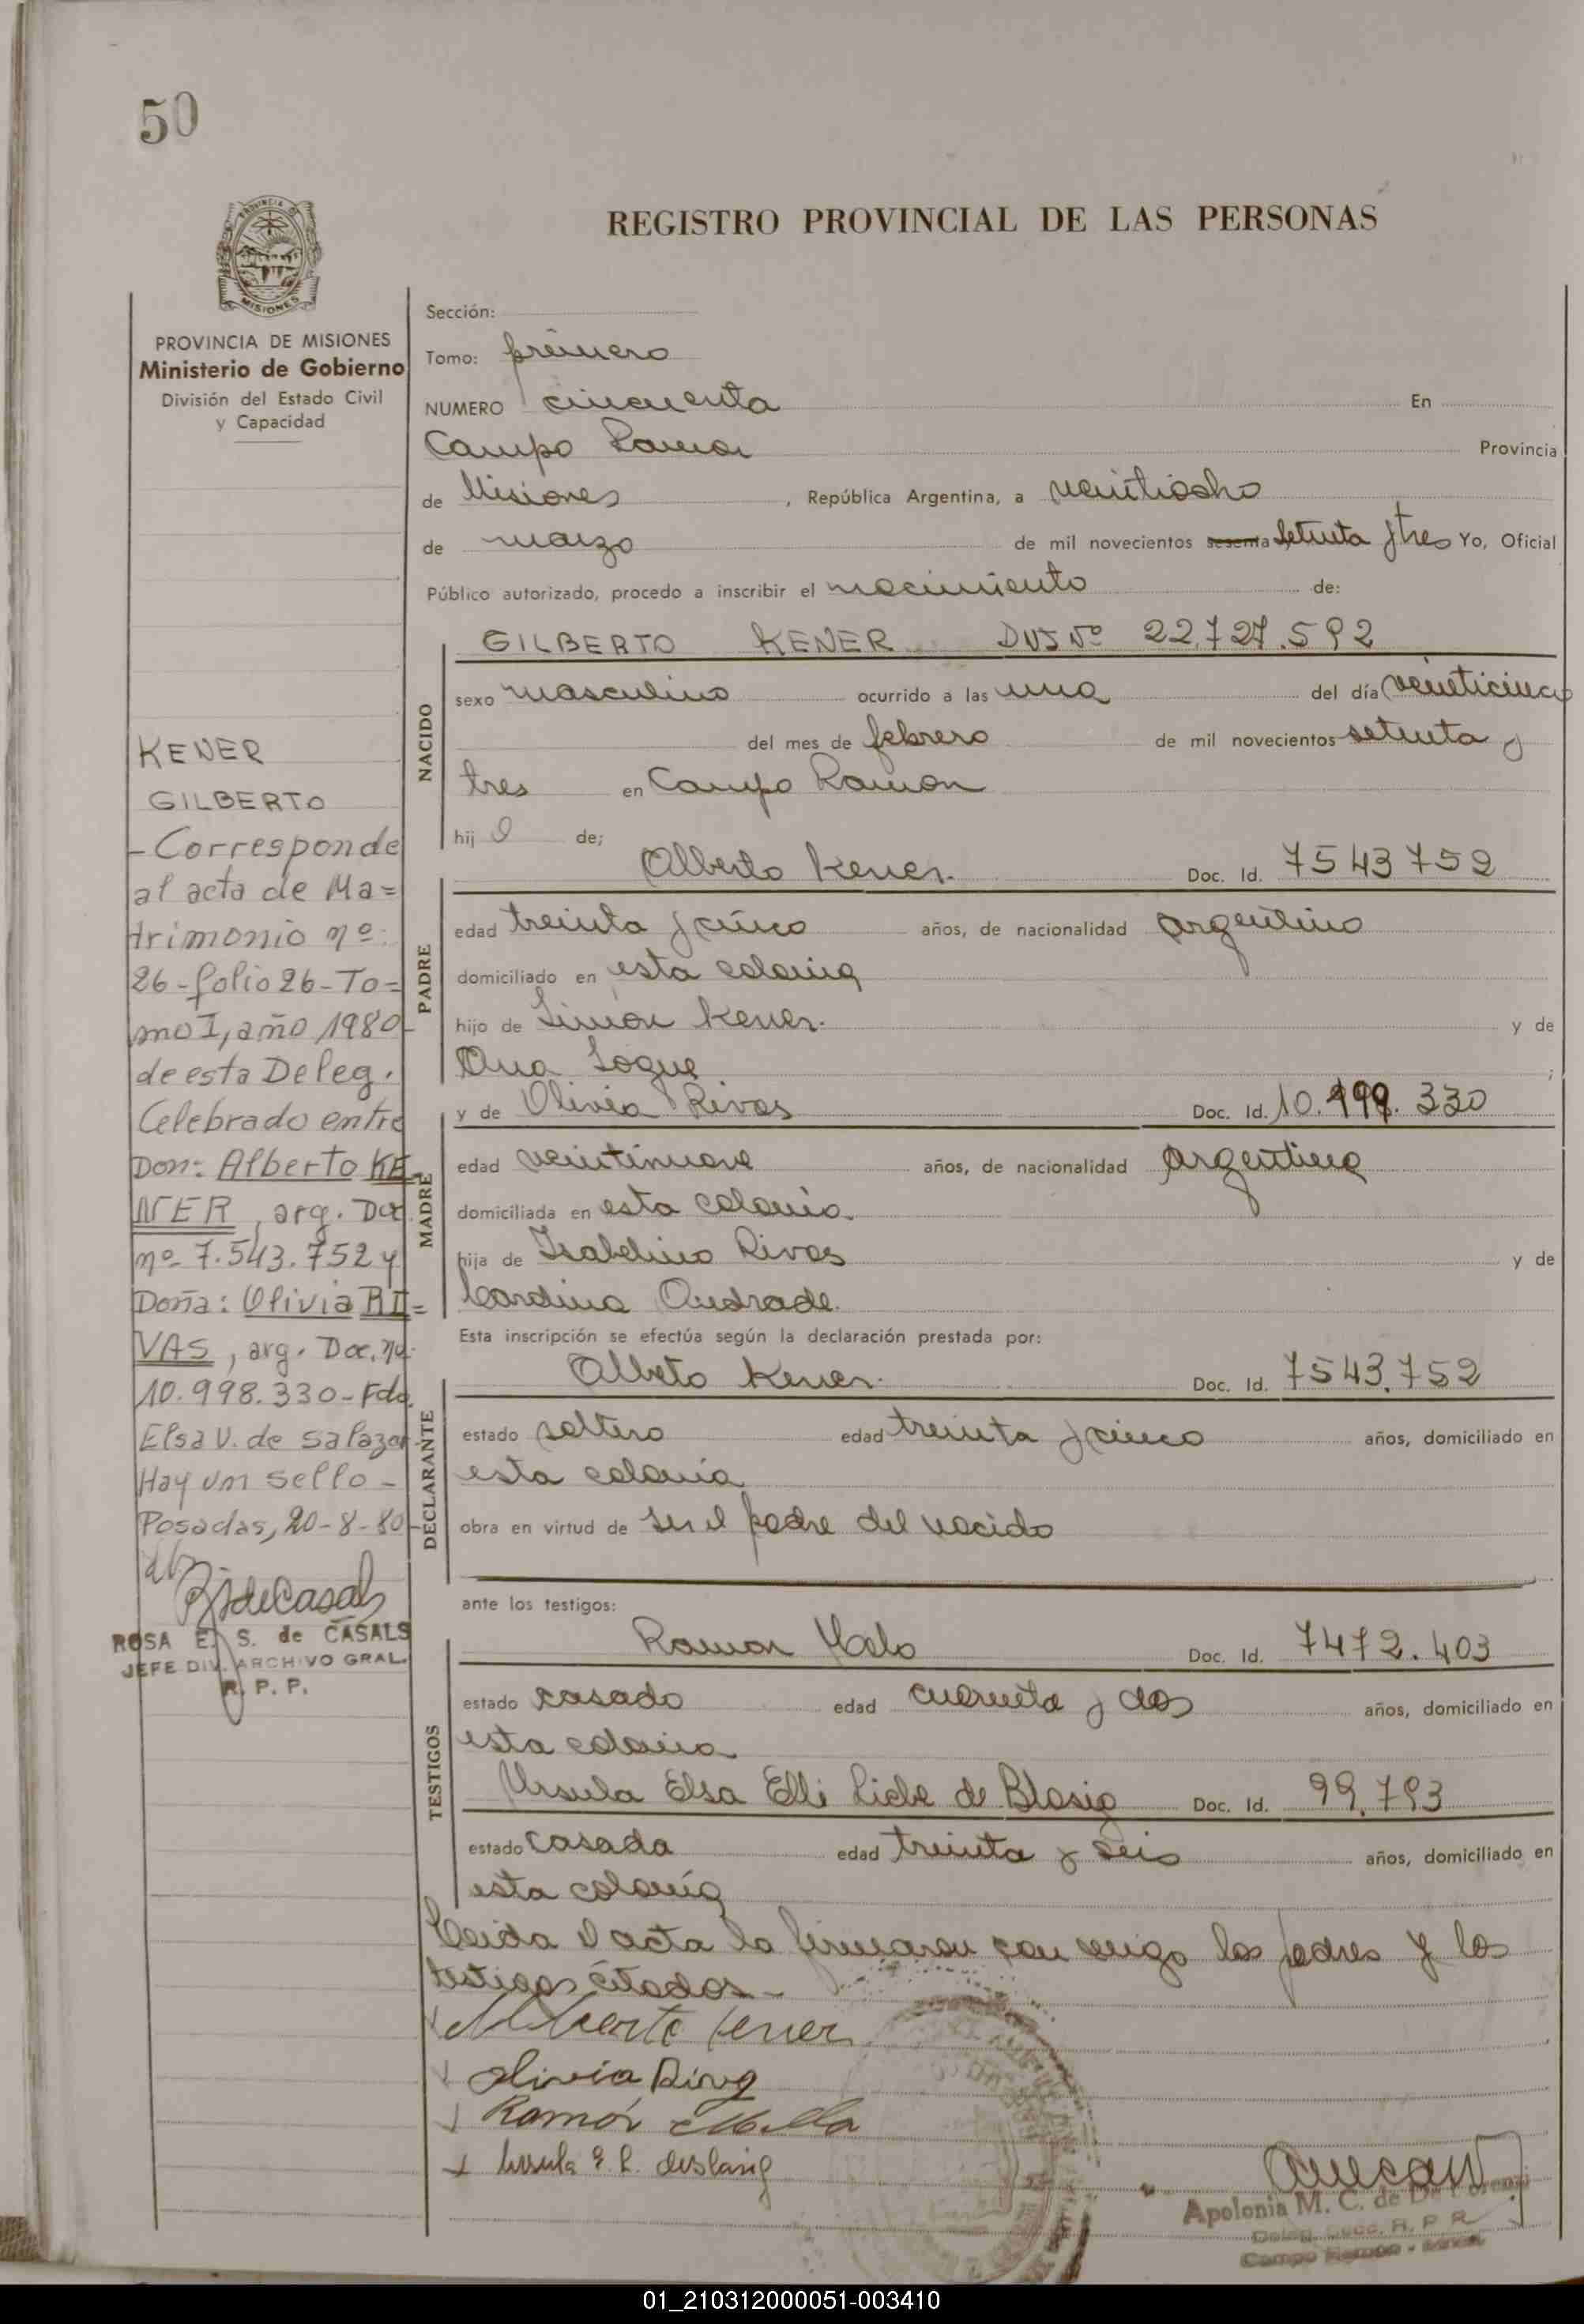 50
REGISTRO PROVINCIAL DE LAS PERSONAS
PROVINCIA DE
MISIONES
PROVINCIA DE MISIONES
Ministerio de Gobierno
División del Estado Civil
y Capacidad
KENER
GILBERTO
- Corresponde
al acta de Ma=
trimonio nº:
26 - folio 26 - To=
mo I, año 1980-
de esta Deleg.
Celebrado entre
Don: Alberto KE-
NER, arg. Doc.
nº 7.543.752 y
Doña: Olivia RI=
VAS, arg. Doc. nº.
10.998.330 - Fdo.
Elsa V. de Salazar-
Hay un sello -
Posadas, 20-8-80-
ROSA E. S. de CASALS
JEFE DIV. ARCHIVO GRAL.
R. P. P.
Sección:
Tomo: primero
NUMERO cincuenta En
Campo Ramon Provincia
de Misiones, República Argentina, a veintiocho
de marzo de mil novecientos sesenta setenta y tres Yo, Oficial
Público autorizado, procedo a inscribir el nacimiento de:
GILBERTO KENER DNI Nº 22.727.592
NACIDO
sexo masculino ocurrido a las una del día veinticinco
del mes de febrero de mil novecientos setenta y
tres en Campo Ramon
hij o de;
Alberto Kener. Doc. Id. 7543752
PADRE
edad treinta y cinco años, de nacionalidad argentino
domiciliado en esta colonia
hijo de Simón Kener. y de
Ana ;
y de Olivia Rivas Doc. Id. 10. 330
MADRE
edad veintinueve años, de nacionalidad argentina
domiciliada en esta colonia.
hija de Isabelino Rivas y de
Andrade.
Esta inscripción se efectúa según la declaración prestada por:
Alberto Kener. Doc. Id. 7543.752
DECLARANTE
estado soltero edad treinta y cinco años, domiciliado en
esta colonia
obra en virtud de ser el padre del nacido
ante los testigos:
Ramon Melo Doc. Id. 7472.403
TESTIGOS
estado casado edad cuarenta y dos años, domiciliado en
esta colonia
Ursula Elsa Elli de Blasig Doc. Id. 99.793
estado casada edad treinta y seis años, domiciliado en
esta colonia
Leida el acta la firmaron con migo los padres y los
testigos citados.-
Alberto Kener
Olivia Rivas
Ramón
Ursula E. L. deblasig
Apolonia M. C. de De Lorenzi
R. P. P.
Campo Ramon -
01_210312000051-003410